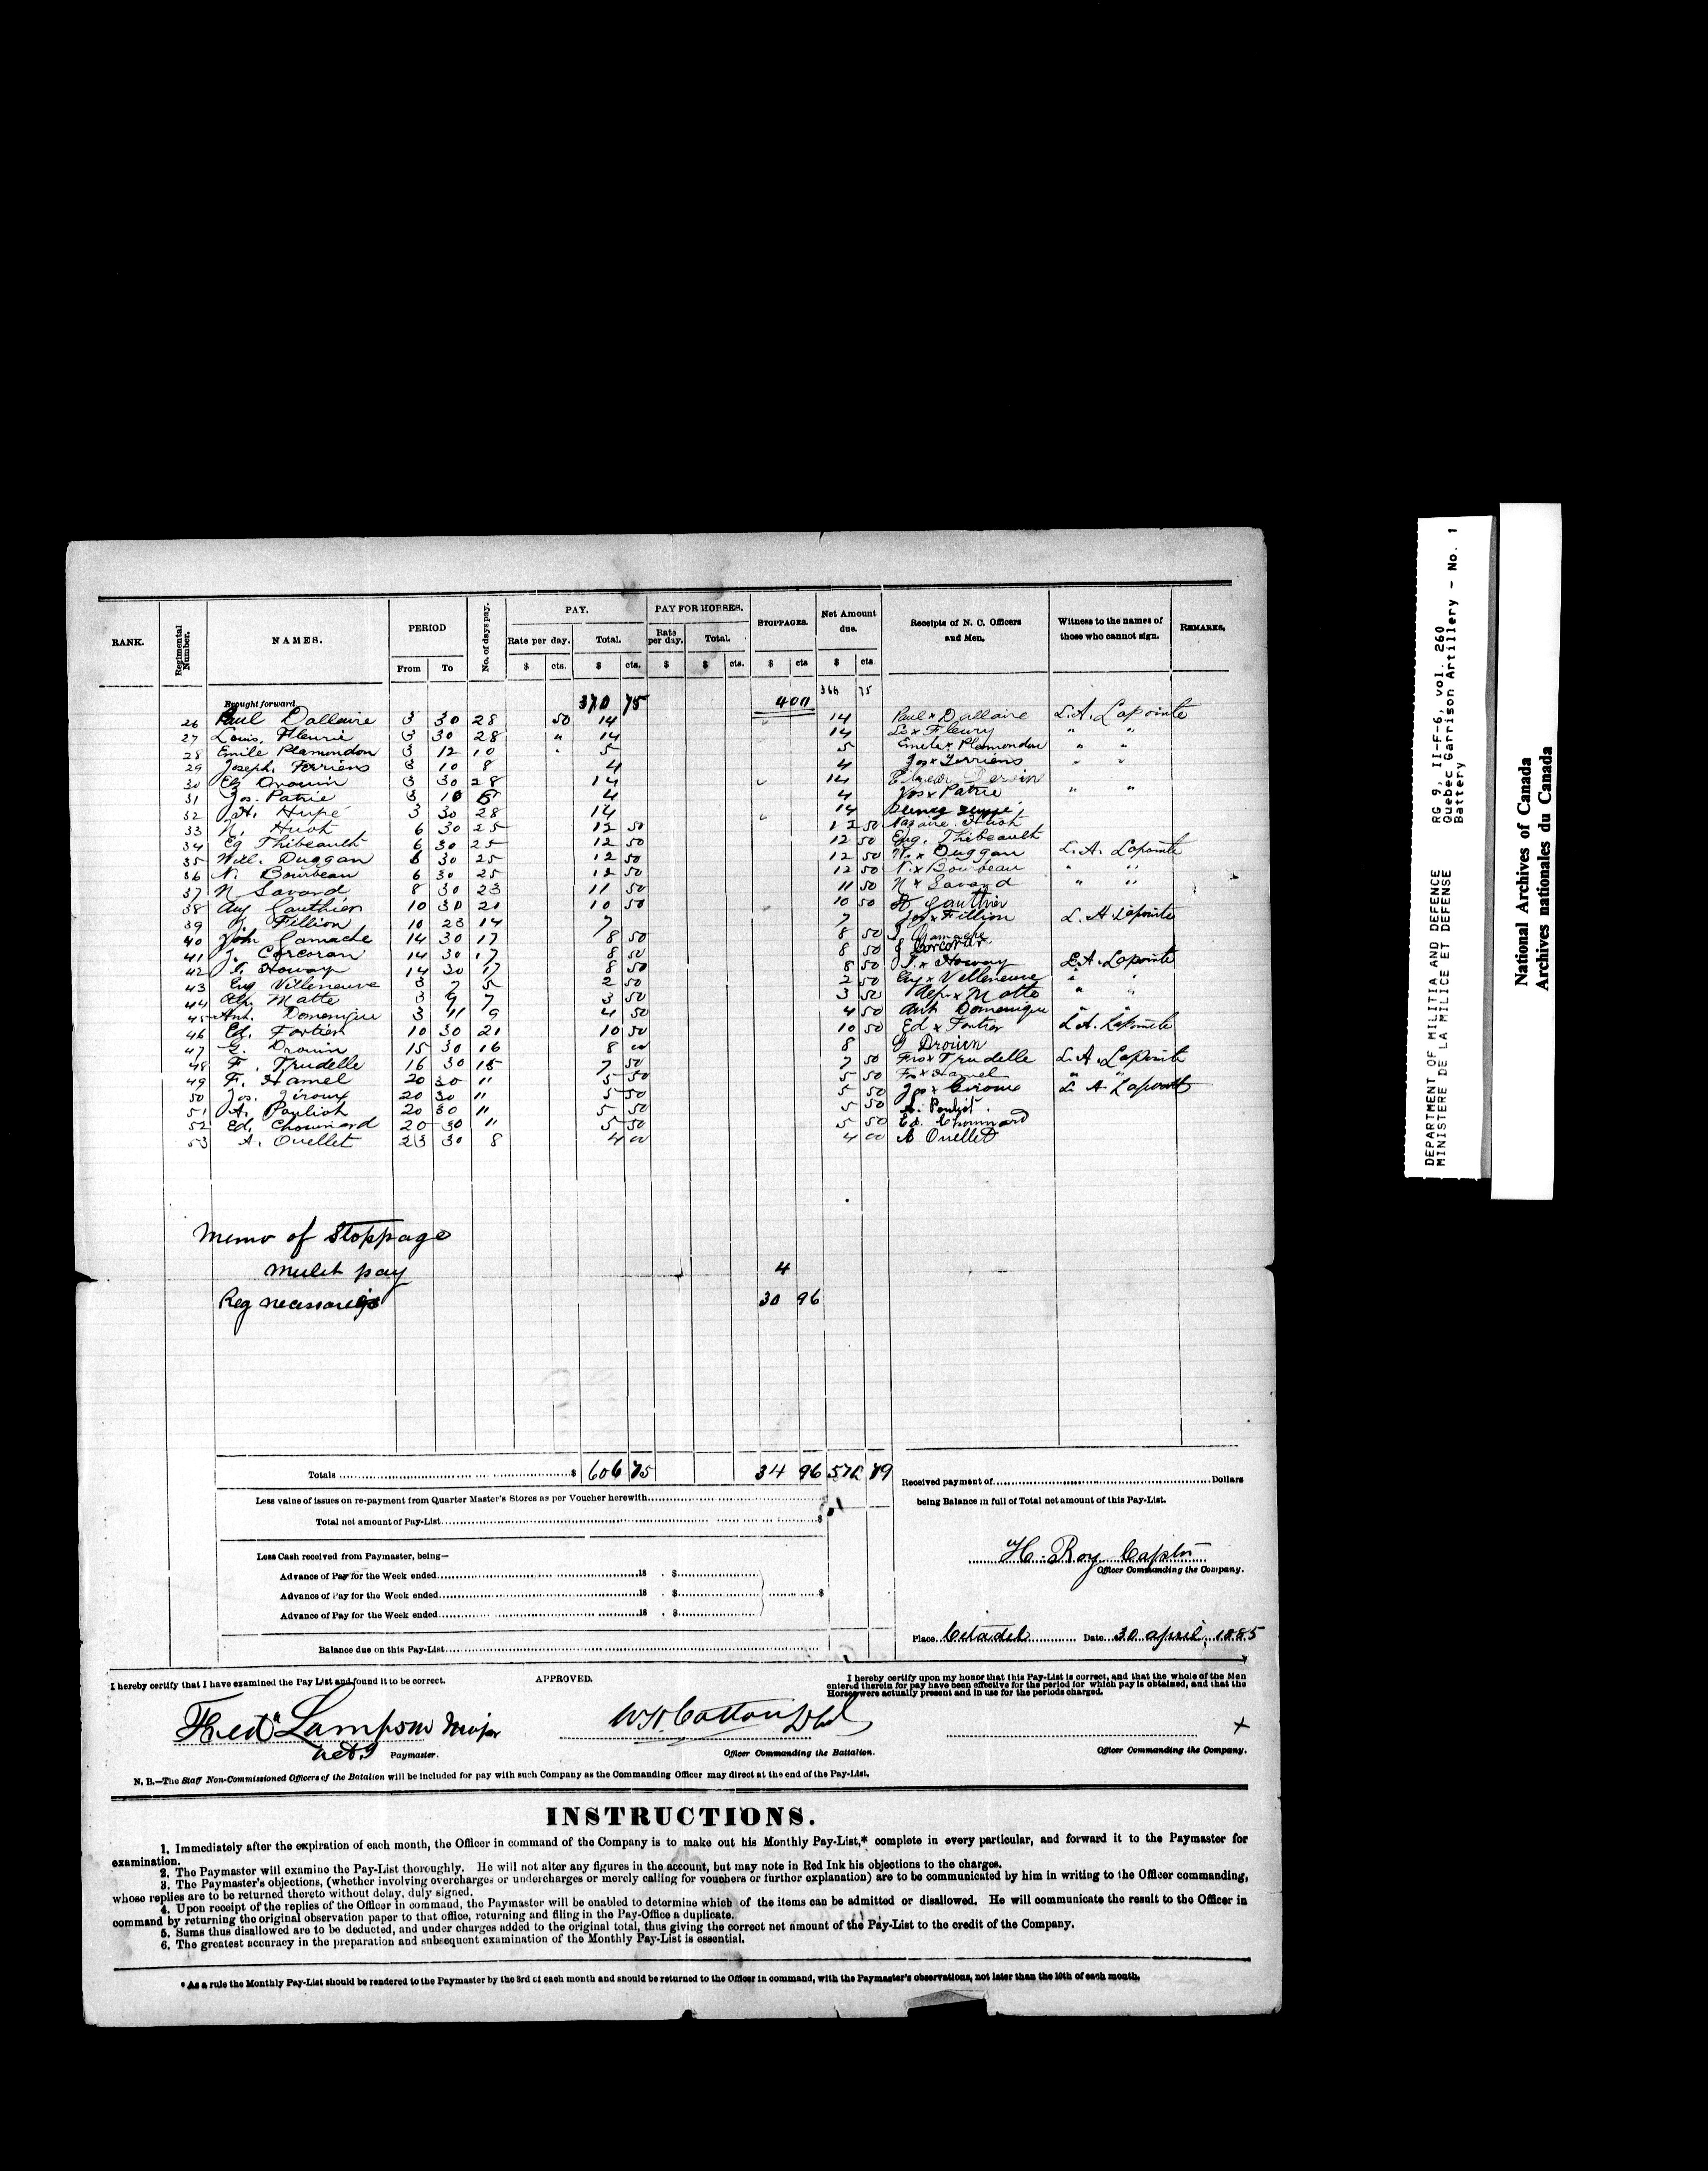 RANK. Regimental Number. NAMES. PERIOD From To No. of days pay. PAY. Rate per day. $ cts. Total. $ cts. PAY FOR HORSES. Rate per day. $ Total. $ cts. STOPPAGES. $ cts Net Amount due. $ cts Receipts of N. C. Officers and Men. Witness to the names of those who cannot sign. REMARKS.
Brought forward 370 75 400 366 75
26 Paul Dallaire 3 30 28 50 14 14 Paul x Dallaire L.A. Lapointe
27 Louis. Fleurie 3 30 28 " 14 14 Ls x Fleury " "
28 Emile Plamondon 3 12 10 " 5 5 Emile x Plamondon " "
29 Joseph. Ferriens 3 10 8 4 4 Jos x Ferriens " "
30 Elz Drouin 3 30 28 14 14
31 Jos. Patrie 3 10 4 4 Jos x Patrie " "
32 H. Hupé 3 30 28 14 14
33 N. Huot 6 30 25 12 50 12 50 Nazaire. Huot
34 Eg Thibeault 6 30 25 12 50 12 50 Eug. Thibeault
35 Will. Duggan 6 30 25 12 50 12 50 W. x Duggan L. A. Lapointe
36 N. Bourbeau 6 30 25 12 50 12 50 N. x Bourbeau " "
37 N Savard 8 30 23 11 50 11 50 N x Savard " "
38 Aug Gauthier 10 30 21 10 50 10 50 Gauthier
39 J. Fillion 10 23 14 7 7 Jos x Fillion L. A Lapointe
40 John Gamache 14 30 17 8 50 8 50 J. Gamache
41 J. Corcoran 14 30 17 8 50 8 50 J Corcoran
42 Howay 14 30 17 8 50 8 50 x Howay L.A. Lapointe
43 Eug Villeneuve 3 7 5 2 50 2 50 Eug x Villeneuve " "
44 Alp. Matte 3 9 7 3 50 3 50 Alp. x Matte " "
45 Ant. Domenique 3 11 9 4 50 4 50 Ant Domenique "
46 Ed. Fortier 10 30 21 10 50 10 50 Ed x Fortier L.A. Lapointe
47 G. Drouin 15 30 16 8 00 8 G Drouin
48 F. Trudelle 16 30 15 7 50 7 50 Fro x Trudelle L. A. Lapointe
49 F. Hamel 20 30 11 5 50 5 50 Fr x Hamel " "
50 Jos. Giroux 20 30 11 5 50 5 50 Jos x Giroux L. A Lapointe
51 A. Pouliot 20 30 11 5 50 5 50 A. Pouliot.
52 Ed. Chouinard 20 30 11 5 50 5 50 Ed. Chouinard
53 A. Ouellet 23 30 8 4 00 4 00 A Ouellet
Memo of Stoppage
Mulct pay 4
Reg necessaries 30 96
Totals $ 606 75 34 96 571 79
Less value of issues on re-payment from Quarter Master's Stores as per Voucher herewith
Total net amount of Pay-List $
Less Cash received from Paymaster, being—
Advance of Pay for the Week ended 18 . $
Advance of Pay for the Week ended 18 . $ $
Advance of Pay for the Week ended 18 . $
Balance due on this Pay-List
Received payment of Dollars
being Balance in full of Total net amount of this Pay-List.
H. Roy Captn
Officer Commanding the Company.
Place Citadel Date 30 april, 1885
I hereby certify that I have examined the Pay List and found it to be correct.
Fred Lampson Major
Paymaster.
APPROVED.
W.H. Cotton
Officer Commanding the Battalion.
I hereby certify upon my honor that this Pay-List is correct, and that the whole of the Men
entered therein for pay have been effective for the period for which pay is obtained, and that the
Horses were actually present and in use for the periods charged.
x
Officer Commanding the Company.
N. B.—The Staff Non-Commissioned Officers of the Batalion will be included for pay with such Company as the Commanding Officer may direct at the end of the Pay-List.
INSTRUCTIONS.
1. Immediately after the expiration of each month, the Officer in command of the Company is to make out his Monthly Pay-List,* complete in every particular, and forward it to the Paymaster for
examination.
2. The Paymaster will examine the Pay-List thoroughly. He will not alter any figures in the account, but may note in Red Ink his objections to the charges.
3. The Paymaster's objections, (whether involving overcharges or undercharges or merely calling for vouchers or further explanation) are to be communicated by him in writing to the Officer commanding,
whose replies are to be returned thereto without delay, duly signed.
4. Upon receipt of the replies of the Officer in command, the Paymaster will be enabled to determine which of the items can be admitted or disallowed. He will communicate the result to the Officer in
command by returning the original observation paper to that office, returning and filing in the Pay-Office a duplicate.
5. Sums thus disallowed are to be deducted, and under charges added to the original total, thus giving the correct net amount of the Pay-List to the credit of the Company.
6. The greatest accuracy in the preparation and subsequent examination of the Monthly Pay-List is essential.
* As a rule the Monthly Pay-List should be rendered to the Paymaster by the 3rd of each month and should be returned to the Officer in command, with the Paymaster's observations, not later than the 10th of each month.
DEPARTMENT OF MILITIA AND DEFENCE
MINISTERE DE LA MILICE ET DEFENSE
RG 9, II-F-6, vol. 260
Quebec Garrison Artillery - No. 1
Battery
National Archives of Canada
Archives nationales du Canada